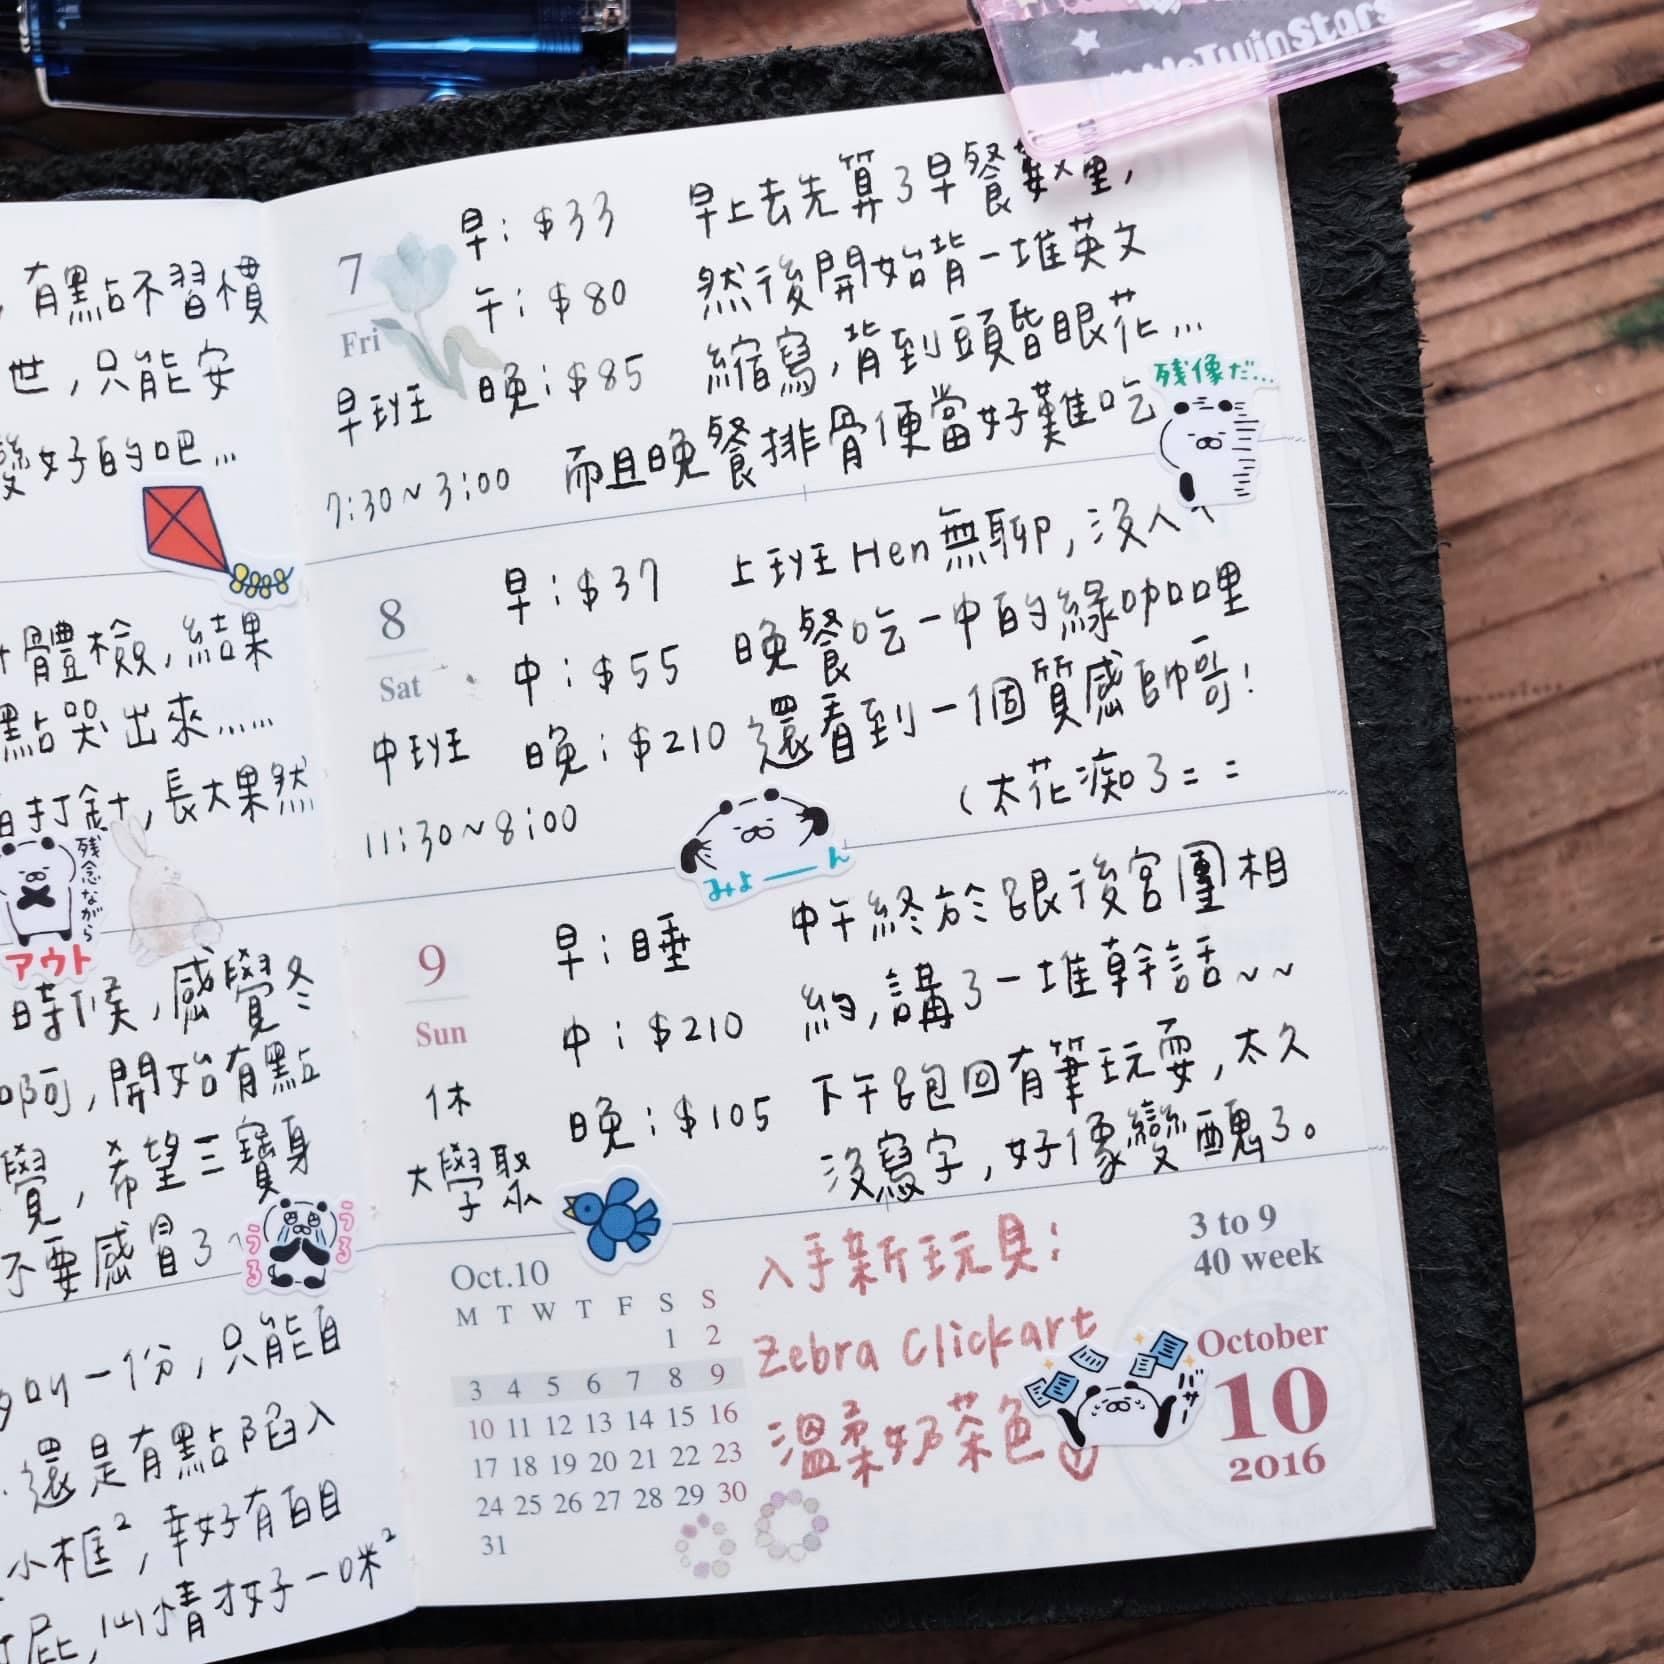 LittleTwinStars
有點不習慣
世，只能安
變好的吧...
體檢，結果
點哭出來......
打針，長大果然
残念ながら
アウト
時候，感覺冬
啊，開始有點
覺，希望三寶身
不要感冒了
うるうる
叫一份，只能自
還是有點陷入
小框²，幸好有自
屁，心情才好一咪²
7
Fri
早班
7:30~3:00
早：$33
午：$80
晚：$85
早上去先算了早餐數量，
然後開始背一堆英文
縮寫，背到頭昏眼花...
而且晚餐排骨便當好難吃
残像だ...
8
Sat
中班
11:30~8:00
早：$37
中：$55
晚：$210
上班Hen無聊，沒人
晚餐吃一中的綠咖哩
還看到一個質感帥哥！
（太花痴了= =
みょーん
9
Sun
休
大學聚
早：睡
中：$210
晚：$105
中午終於跟後宮團相
約，講了一堆幹話~~
下午跑回有筆玩耍，太久
沒寫字，好像變醜了。
Oct.10
M T W T F S S
1 2
3 4 5 6 7 8 9
10 11 12 13 14 15 16
17 18 19 20 21 22 23
24 25 26 27 28 29 30
31
入手新玩具：
Zebra Clickart
溫柔奶茶色♡
バサー
3 to 9
40 week
October
10
2016